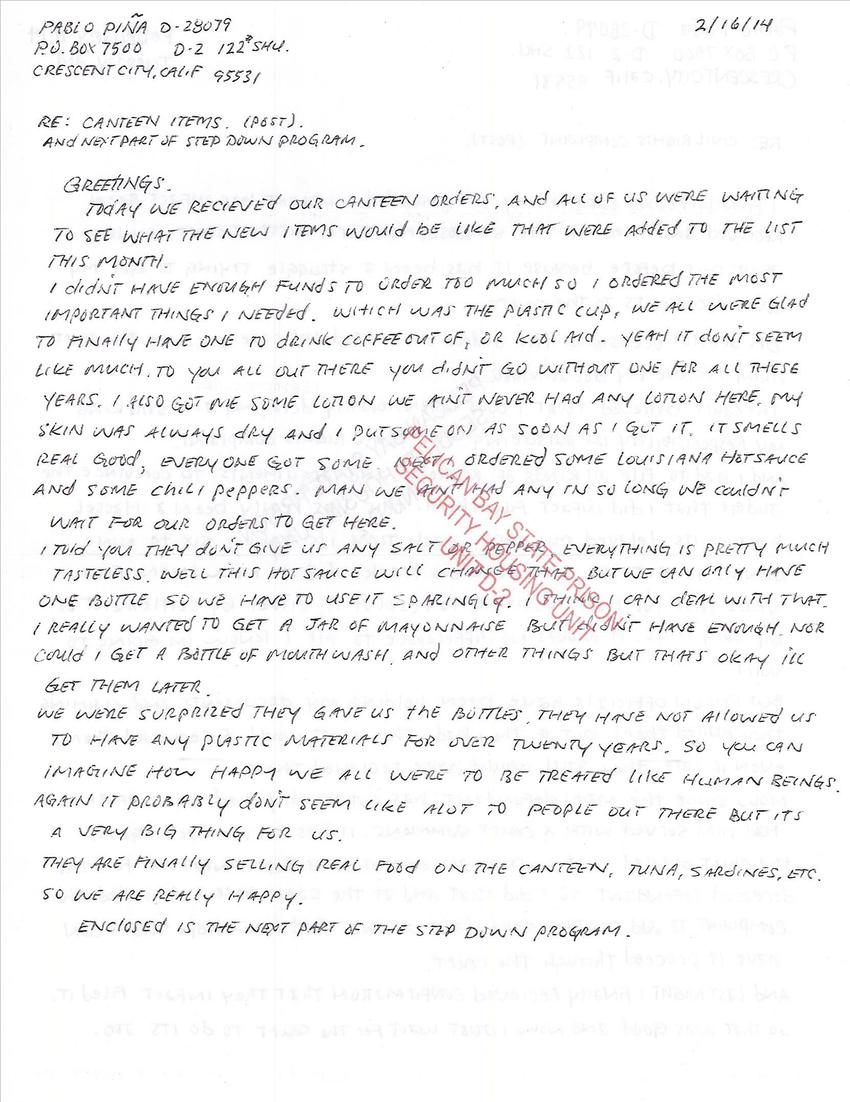 PABLO PIÑA D-28079 2/16/14
P.O. BOX 7500 D-2 122# SHU.
CRESCENT CITY, CALIF 95531
RE: CANTEEN ITEMS. (POST).
AND NEXT PART OF STEP DOWN PROGRAM.
GREETINGS.
TODAY WE RECIEVED OUR CANTEEN ORDERS, AND ALL OF US WERE WAITING
TO SEE WHAT THE NEW ITEMS WOULD BE LIKE THAT WERE ADDED TO THE LIST
THIS MONTH.
I DIDN'T HAVE ENOUGH FUNDS TO ORDER TOO MUCH SO I ORDERED THE MOST
IMPORTANT THINGS I NEEDED. WHICH WAS THE PLASTIC CUP, WE ALL WERE GLAD
TO FINALLY HAVE ONE TO DRINK COFFEE OUT OF, OR KOOL AID. YEAH IT DON'T SEEM
LIKE MUCH. TO YOU ALL OUT THERE YOU DIDN'T GO WITHOUT ONE FOR ALL THESE
YEARS. I ALSO GOT ME SOME LOTION WE AIN'T NEVER HAD ANY LOTION HERE. MY
SKIN WAS ALWAYS DRY AND I PUT SOME ON AS SOON AS I GOT IT. IT SMELLS
REAL GOOD, EVERYONE GOT SOME. NEXT I ORDERED SOME LOUISIANA HOTSAUCE
AND SOME CHILI PEPPERS. MAN WE AIN'T HAD ANY IN SO LONG WE COULDN'T
WAIT FOR OUR ORDERS TO GET HERE.
I TOLD YOU THEY DON'T GIVE US ANY SALT OR PEPPER EVERYTHING IS PRETTY MUCH
TASTELESS. WELL THIS HOT SAUCE WILL CHANGE THAT. BUT WE CAN ONLY HAVE
ONE BOTTLE SO WE HAVE TO USE IT SPARINGLY. I THINK I CAN DEAL WITH THAT.
I REALLY WANTED TO GET A JAR OF MAYONNAISE BUT DIDN'T HAVE ENOUGH. NOR
COULD I GET A BOTTLE OF MOUTHWASH. AND OTHER THINGS BUT THATS OKAY I'LL
GET THEM LATER.
WE WERE SURPRIZED THEY GAVE US THE BOTTLES. THEY HAVE NOT ALLOWED US
TO HAVE ANY PLASTIC MATERIALS FOR OVER TWENTY YEARS. SO YOU CAN
IMAGINE HOW HAPPY WE ALL WERE TO BE TREATED LIKE HUMAN BEINGS.
AGAIN IT PROBABLY DON'T SEEM LIKE ALOT TO PEOPLE OUT THERE BUT ITS
A VERY BIG THING FOR US.
THEY ARE FINALLY SELLING REAL FOOD ON THE CANTEEN, TUNA, SARDINES, ETC.
SO WE ARE REALLY HAPPY.
ENCLOSED IS THE NEXT PART OF THE STEP DOWN PROGRAM.
PELICAN BAY STATE PRISON
SECURITY HOUSING UNIT
UNIT D-2